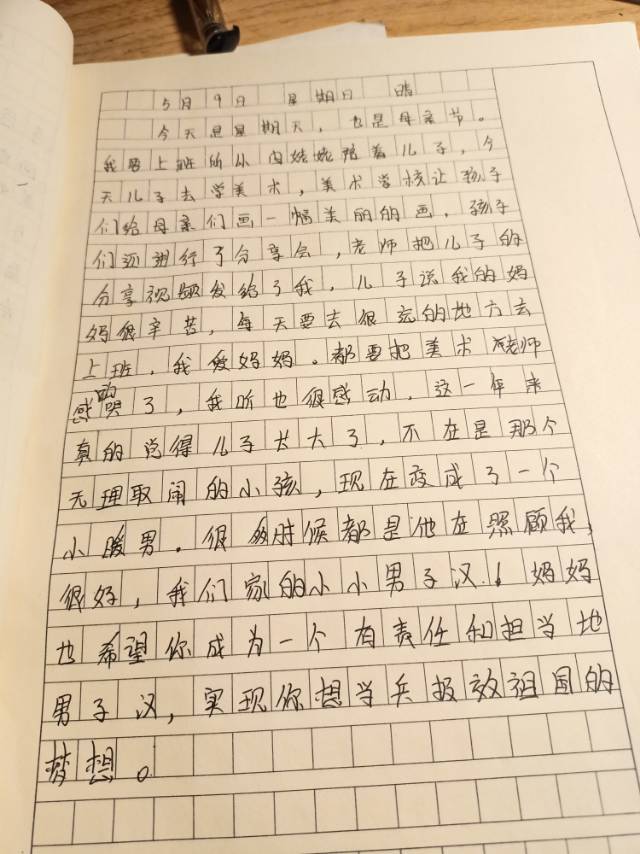 5月9日 星期日 晴
今天是星期天，也是母亲节。
我要上班所以由姑姑陪着儿子，今
天儿子去学美术，美术学校让孩子
们给母亲们画一幅美丽的画，孩子
们还进行了分享会，老师把儿子的
分享视频发给了我，儿子说我的妈
妈很辛苦，每天要去很远的地方去
上班，我爱妈妈。都要把美术老师
感动哭了，我听也很感动，这一年来
真的觉得儿子长大了，不在是那个
无理取闹的小孩，现在变成了一个
小暖男。很多时候都是他在照顾我，
很好，我们家的小小男子汉！妈妈
也希望你成为一个有责任和担当地
男子汉，实现你想当兵报效祖国的
梦想。